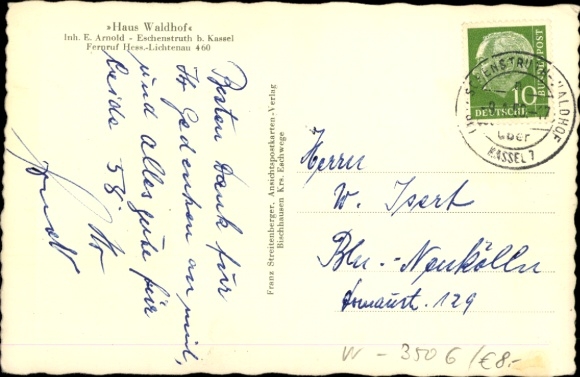 »Haus Waldhof«
Inh. E. Arnold - Eschenstruth b. Kassel
Fernruf Hess.-Lichtenau 460
Besten Dank für
Ihr Gedenken an mich,
und alles gute für
beide 58.
Ihr
Franz Streitenberger, Ansichtspostkarten-Verlag
Bischhausen Krs. Eschwege
10
DEUTSCHE
BUNDESPOST
ESCHENSTRUTH WALDHOF
über
KASSEL 7
Herrn
W. Isert
Bln.-Neukölln
129
W - 350 G / € 8.-